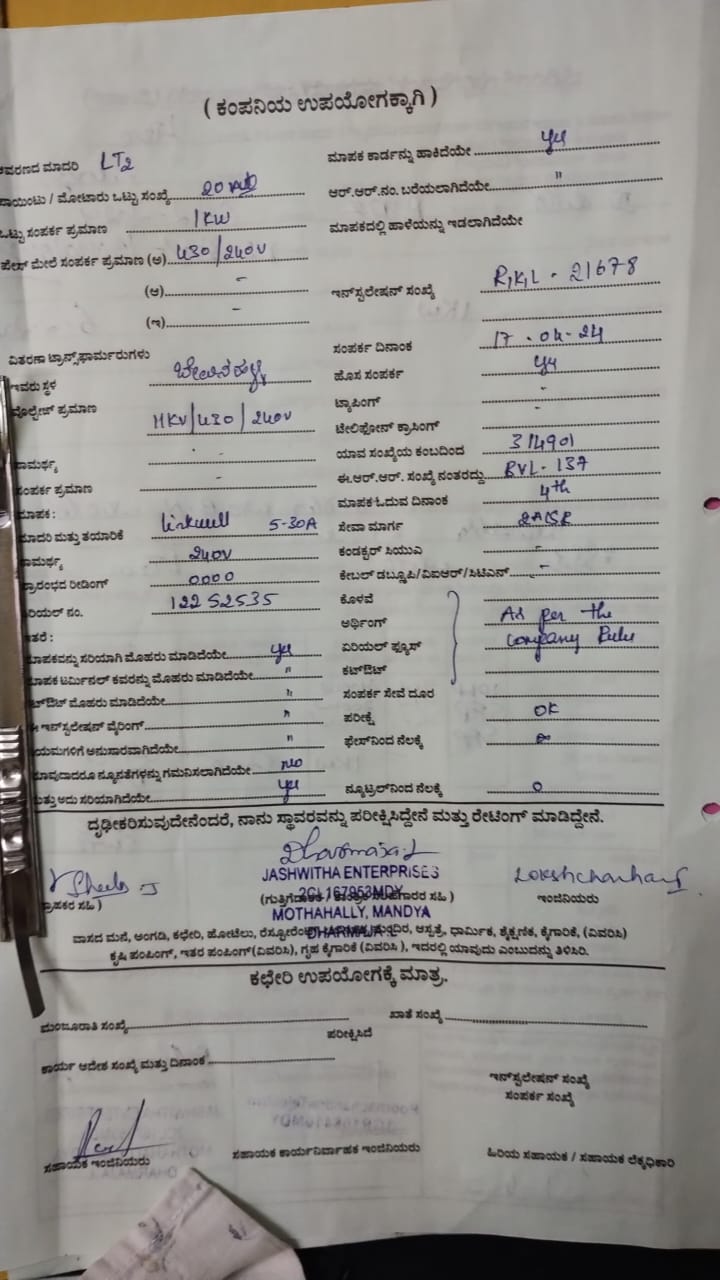 ( ಕಂಪನಿಯ ಉಪಯೋಗಕ್ಕಾಗಿ )
ಆವರಣದ ಮಾದರಿ LT2
ಮಾಪಕ ಕಾರ್ಡನ್ನು ಹಾಕಿದೆಯೇ yes
ಪಾಯಿಂಟು / ಮೋಟಾರು ಒಟ್ಟು ಸಂಖ್ಯೆ 20
ಆರ್.ಆರ್.ನಂ. ಬರೆಯಲಾಗಿದೆಯೇ "
ಒಟ್ಟು ಸಂಪರ್ಕ ಪ್ರಮಾಣ 1KW
ಮಾಪಕದಲ್ಲಿ ಹಾಳೆಯನ್ನು ಇಡಲಾಗಿದೆಯೇ
ಫೇಸ್ ಮೇಲೆ ಸಂಪರ್ಕ ಪ್ರಮಾಣ (ಅ) 430/240V
(ಆ) -
ಇನ್‌ಸ್ಟಲೇಷನ್ ಸಂಖ್ಯೆ R,K,L - 21678
(ಇ) -
ವಿತರಣಾ ಟ್ರಾನ್ಸ್‌ಫಾರ್ಮರುಗಳು
ಸಂಪರ್ಕ ದಿನಾಂಕ 17.04-24
ಇವರು ಸ್ಥಳ
ಹೊಸ ಸಂಪರ್ಕ yes
ಟ್ಯಾಪಿಂಗ್ -
ವೋಲ್ಟೇಜ್ ಪ್ರಮಾಣ 11KV/430/240V
ಟೆಲಿಫೋನ್ ಕ್ರಾಸಿಂಗ್ -
ಸಾಮರ್ಥ್ಯ -
ಯಾವ ಸಂಖ್ಯೆಯ ಕಂಬದಿಂದ 314901
ಸಂಪರ್ಕ ಪ್ರಮಾಣ -
ಈ.ಆರ್.ಆರ್. ಸಂಖ್ಯೆ ನಂತರದ್ದು BVL-137
ಮಾಪಕ:
ಮಾಪಕ ಓದುವ ದಿನಾಂಕ 4th
ಮಾದರಿ ಮತ್ತು ತಯಾರಿಕೆ Linkwell 5-30A
ಸೇವಾ ಮಾರ್ಗ
ಸಾಮರ್ಥ್ಯ 240V
ಕಂಡಕ್ಟರ್ ಸಿಯುಎ -
ಪ್ರಾರಂಭದ ರೀಡಿಂಗ್ 0000
ಕೇಬಲ್ ಡಬ್ಲ್ಯೂಪಿ/ವಿಐಆರ್/ಸಿಟಿಎಸ್ -
ಸೀರಿಯಲ್ ನಂ. 12252535
ಕೊಳವೆ
ಅರ್ಥಿಂಗ್ As per the
ಇತರೆ :
ಏರಿಯಲ್ ಫ್ಯೂಸ್ Company Rules
ಮಾಪಕವನ್ನು ಸರಿಯಾಗಿ ಮೊಹರು ಮಾಡಿದೆಯೇ yes
ಕಟ್‌ಔಟ್
ಮಾಪಕ ಟರ್ಮಿನಲ್ ಕವರನ್ನು ಮೊಹರು ಮಾಡಿದೆಯೇ "
ಸಂಪರ್ಕ ಸೇವೆ ದೂರ
ಕಟ್‌ಔಟ್ ಮೊಹರು ಮಾಡಿದೆಯೇ "
ಪರೀಕ್ಷೆ OK
ಈ ಇನ್‌ಸ್ಟಲೇಷನ್ ವೈರಿಂಗ್ "
ಫೇಸ್‌ನಿಂದ ನೆಲಕ್ಕೆ ∞
ನಿಯಮಗಳಿಗೆ ಅನುಸಾರವಾಗಿದೆಯೇ "
ಯಾವುದಾದರೂ ನ್ಯೂನತೆಗಳನ್ನು ಗಮನಿಸಲಾಗಿದೆಯೇ no
ಮತ್ತು ಅದು ಸರಿಯಾಗಿದೆಯೇ yes
ನ್ಯೂಟ್ರಲ್‌ನಿಂದ ನೆಲಕ್ಕೆ 0
ದೃಢೀಕರಿಸುವುದೇನೆಂದರೆ, ನಾನು ಸ್ಥಾವರವನ್ನು ಪರೀಕ್ಷಿಸಿದ್ದೇನೆ ಮತ್ತು ರೇಟಿಂಗ್ ಮಾಡಿದ್ದೇನೆ.
JASHWITHA ENTERPRISES
2CL167953MDY
(ಗ್ರಾಹಕರ ಸಹಿ )
ಇಂಜಿನಿಯರು
MOTHAHALLY, MANDYA
DHARMAJA
ವಾಸದ ಮನೆ, ಅಂಗಡಿ, ಕಛೇರಿ, ಹೋಟೆಲು, ಆಸ್ಪತ್ರೆ, ಧಾರ್ಮಿಕ, ಶೈಕ್ಷಣಿಕ, ಕೈಗಾರಿಕೆ, (ವಿವರಿಸಿ)
ಕೃಷಿ ಪಂಪಿಂಗ್, ಇತರ ಪಂಪಿಂಗ್(ವಿವರಿಸಿ), ಗೃಹ ಕೈಗಾರಿಕೆ (ವಿವರಿಸಿ ), ಇದರಲ್ಲಿ ಯಾವುದು ಎಂಬುದನ್ನು ತಿಳಿಸಿರಿ.
ಕಛೇರಿ ಉಪಯೋಗಕ್ಕೆ ಮಾತ್ರ.
ಮಂಜೂರಾತಿ ಸಂಖ್ಯೆ
ಖಾತೆ ಸಂಖ್ಯೆ
ಪರೀಕ್ಷಿಸಿದೆ
ಕಾರ್ಯ ಆದೇಶ ಸಂಖ್ಯೆ ಮತ್ತು ದಿನಾಂಕ
ಇನ್‌ಸ್ಟಲೇಷನ್ ಸಂಖ್ಯೆ
ಸಂಪರ್ಕ ಸಂಖ್ಯೆ
ಸಹಾಯಕ ಇಂಜಿನಿಯರು
ಸಹಾಯಕ ಕಾರ್ಯನಿರ್ವಾಹಕ ಇಂಜಿನಿಯರು
ಹಿರಿಯ ಸಹಾಯಕ / ಸಹಾಯಕ ಲೆಕ್ಕಧಿಕಾರಿ